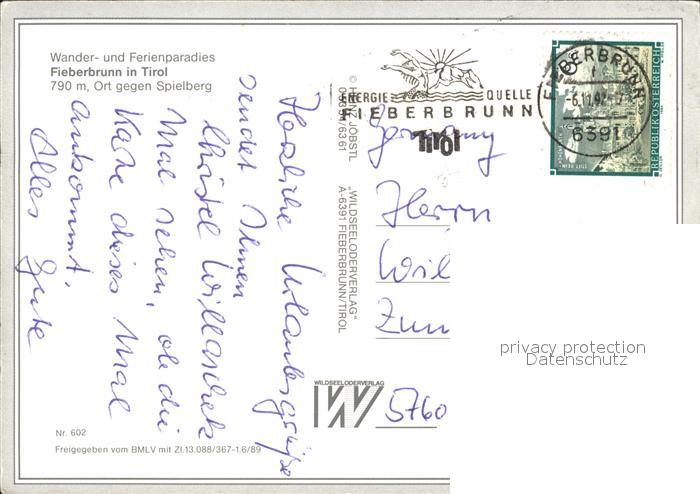 Wander- und Ferienparadies
Fieberbrunn in Tirol
790 m, Ort gegen Spielberg
Herzliche Urlaubsgrüße
sendet Ihnen
Christel
Mal sehen, ob die
Karte dieses Mal
ankommt.
Alles Gute
Nr. 602
Freigegeben vom BMLV mit Zl.13.088/367-1.6/89
© HEINZ JÖBSTL
"WILDSEELODERVERLAG"
A-6391 FIEBERBRUNN/TIROL
WILDSEELODERVERLAG
W
ENERGIE QUELLE
FIEBERBRUNN
Tirol
FIEBERBRUNN
6391
REPUBLIK ÖSTERREICH
Germany
Herrn
Wil
Zum
5760
privacy protection
Datenschutz